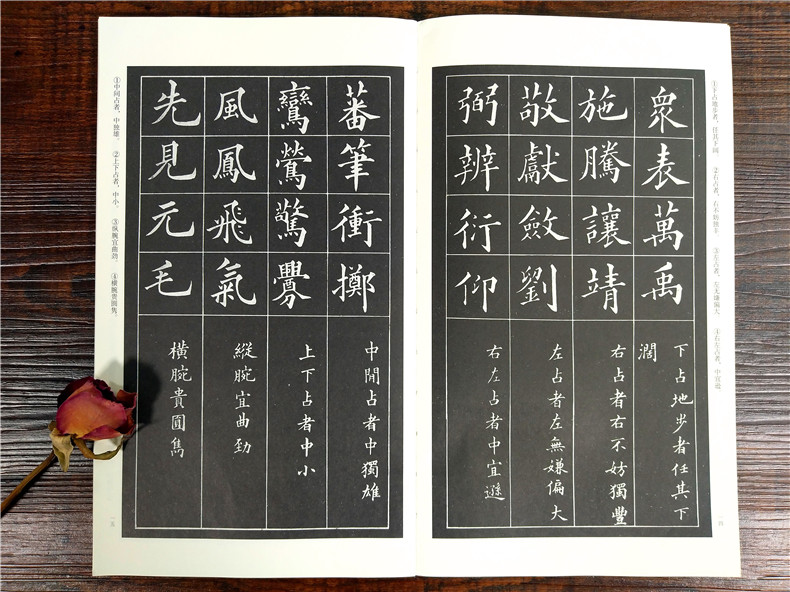 ①下占地步者，任其下阔。 ②右占者，右不妨独丰。 ③左占者，左无嫌偏大。 ④右左占者，中宜逊。
眾表萬禹
下占地步者任其下
濶
施騰讓靖
右占者右不妨獨豐
敬獻斂劉
左占者左無嫌偏大
弼辨衍仰
右左占者中宜遜
一四
蕃筆衝擲
中閒占者中獨雄
鸞鶯驚釁
上下占者中小
風鳳飛氣
縱腕宜曲勁
先見元毛
橫腕貴圓雋
①中间占者，中独雄。 ②上下占者，中小。 ③纵腕宜曲劲。 ④横腕贵圆隽。
一五